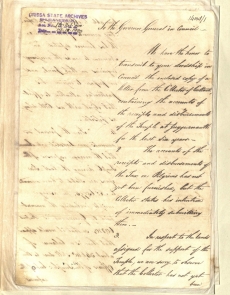 ORISSA STATE ARCHIVES
To the Governor General in Council
We have the honor to
transmit to your Lordship in
Council the enclosed copy of a
letter from the Collector of Cuttack
containing the amounts of
the receipts and disbursements
of the Temple at Juggernauth
for the last six years—
2 The amounts of the
receipts and disbursements of
the Tax on Pilgrims has not
yet been furnished, but the
Collector states his intention
of immediately submitting
them—
3. In respect to the lands
assigned for the support of the
Temple, we are sorry to observe
that the Collector has not yet
been